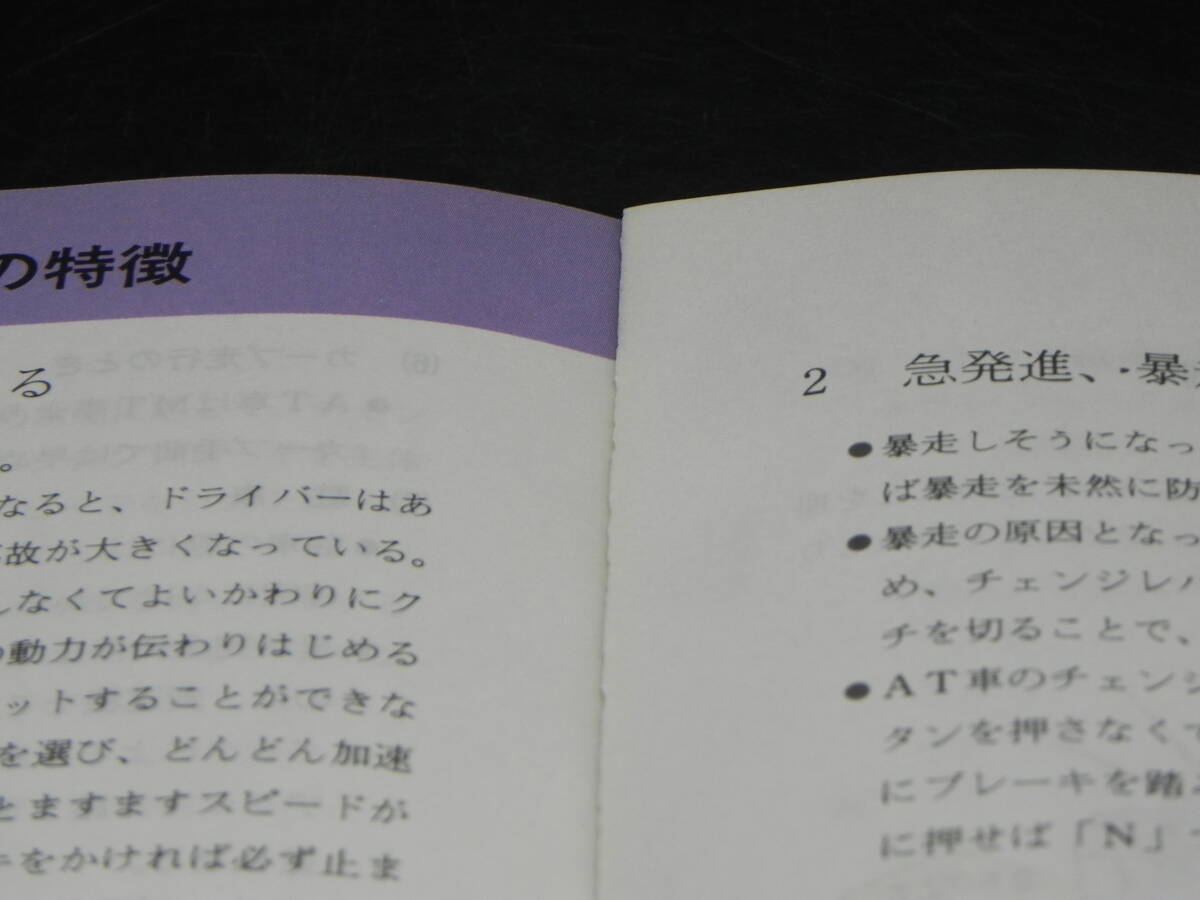 の特徴
る
。
なると、ドライバーはあ
故が大きくなっている。
しなくてよいかわりにク
動力が伝わりはじめる
ットすることができな
を選び、どんどん加速
とますますスピードが
キをかければ必ず止ま
2 急発進、・暴走
●暴走しそうになっ
ば暴走を未然に防
●暴走の原因となっ
め、チェンジレバ
チを切ることで、
●AT車のチェンジ
タンを押さなくて
にブレーキを踏み
に押せば「N」